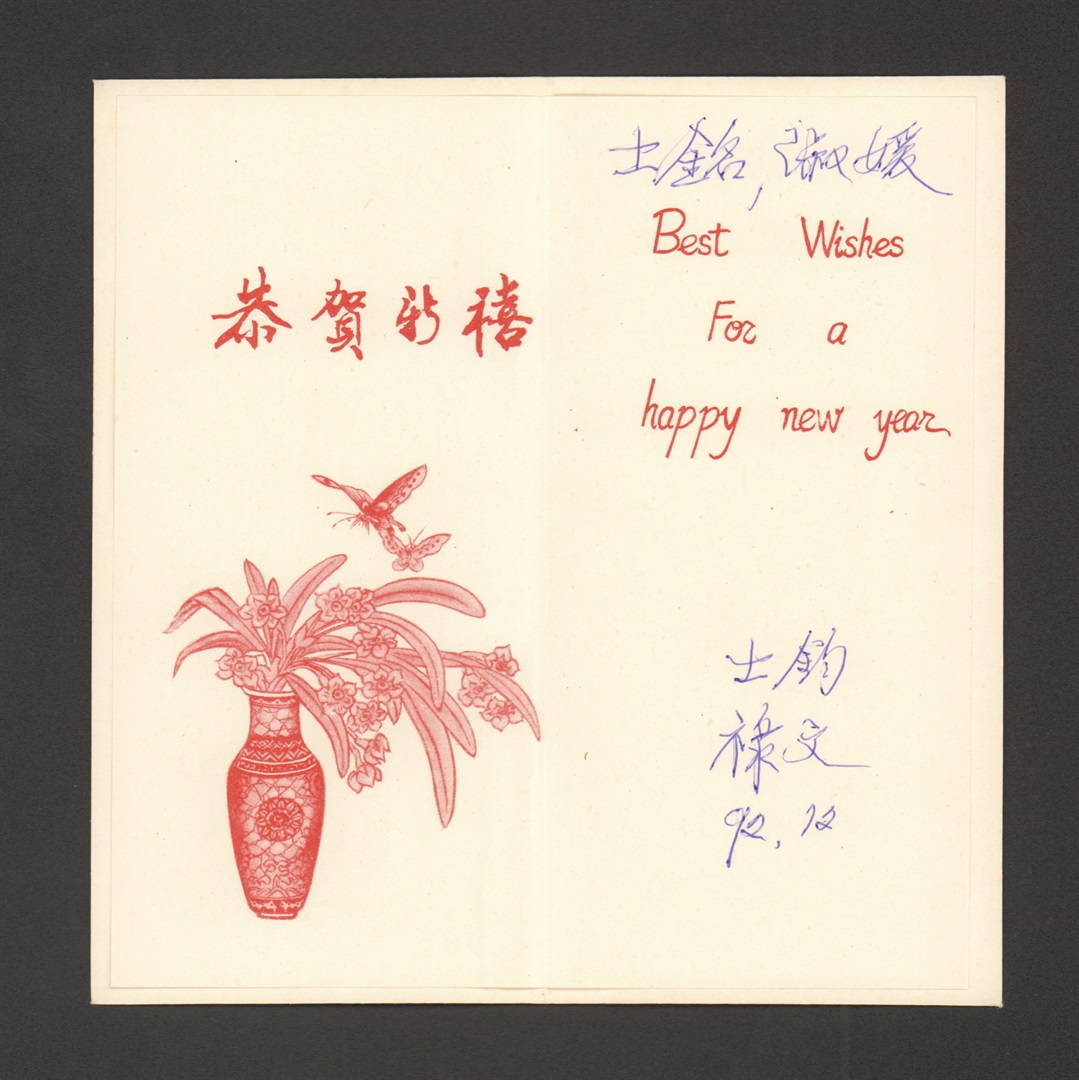 恭賀新禧
士銘，淑媛
Best Wishes
For a
happy new year
士鈞
祿文
92.12